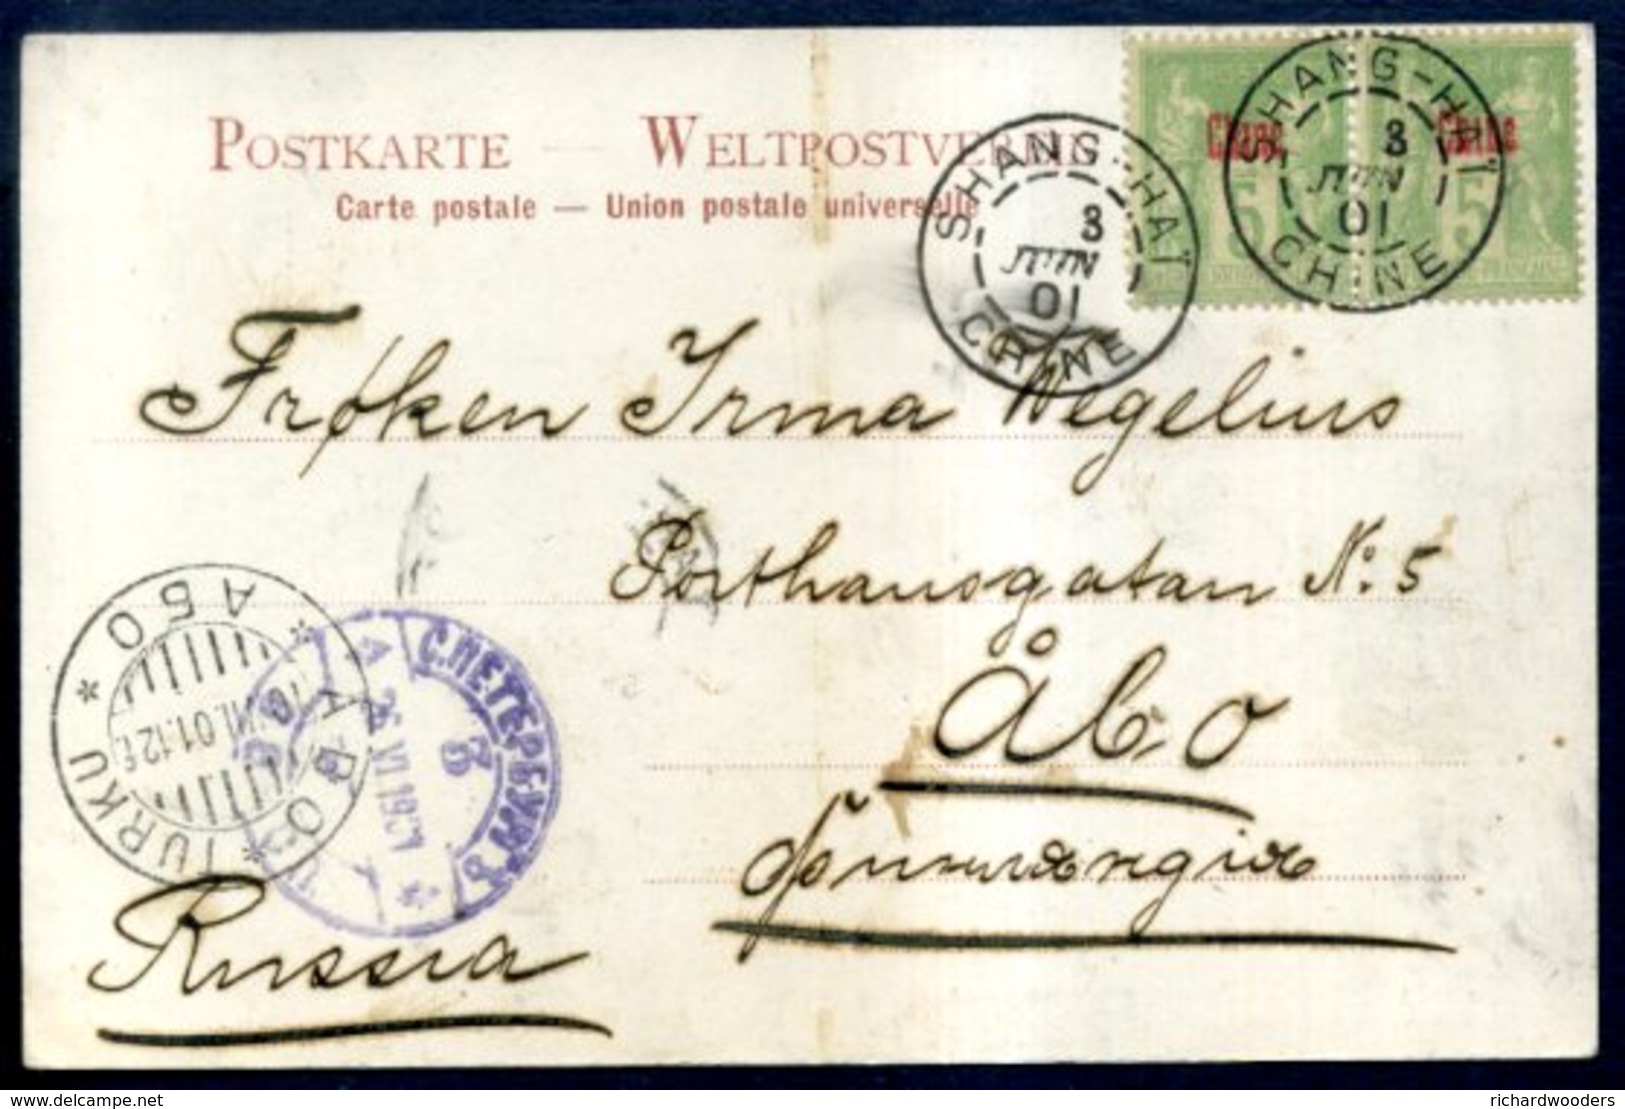 POSTKARTE — WELTPOSTVEREIN
Carte postale — Union postale universelle
SHANG-HAÏ
3
JUIN
01
CHINE
SHANG-HAÏ
3
JUIN
01
CHINE
Chine
5
Chine
5
Frøken Irma Wegelius
Porthansgatan No: 5
Åbo
Финляндія
Russia
АБО
ÅBO
TURKU
С.ПЕТЕРБУРГЪ
26 VI 1901
delcampe.net
richardwooders